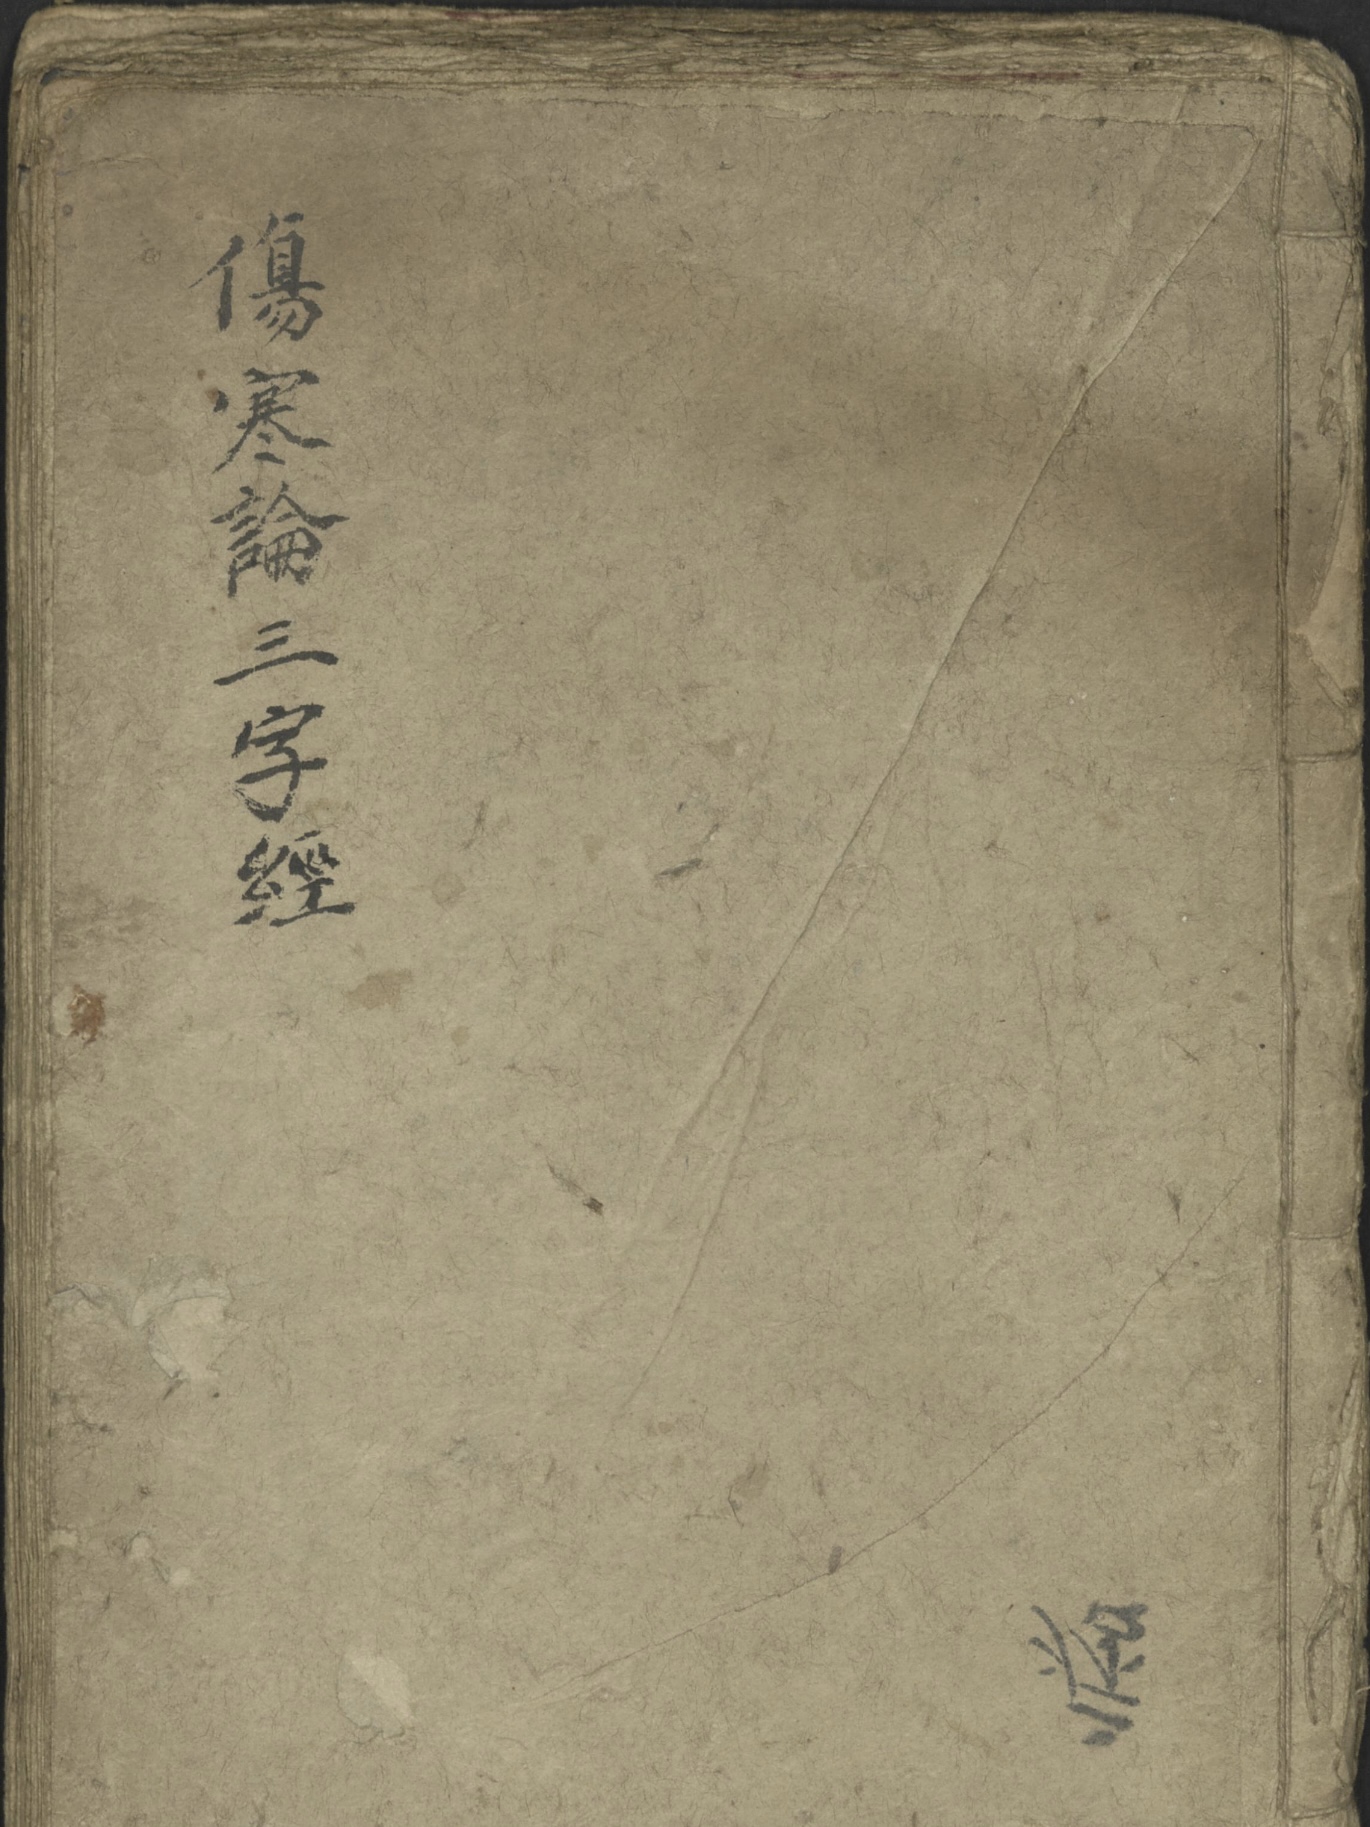 傷寒論三字經